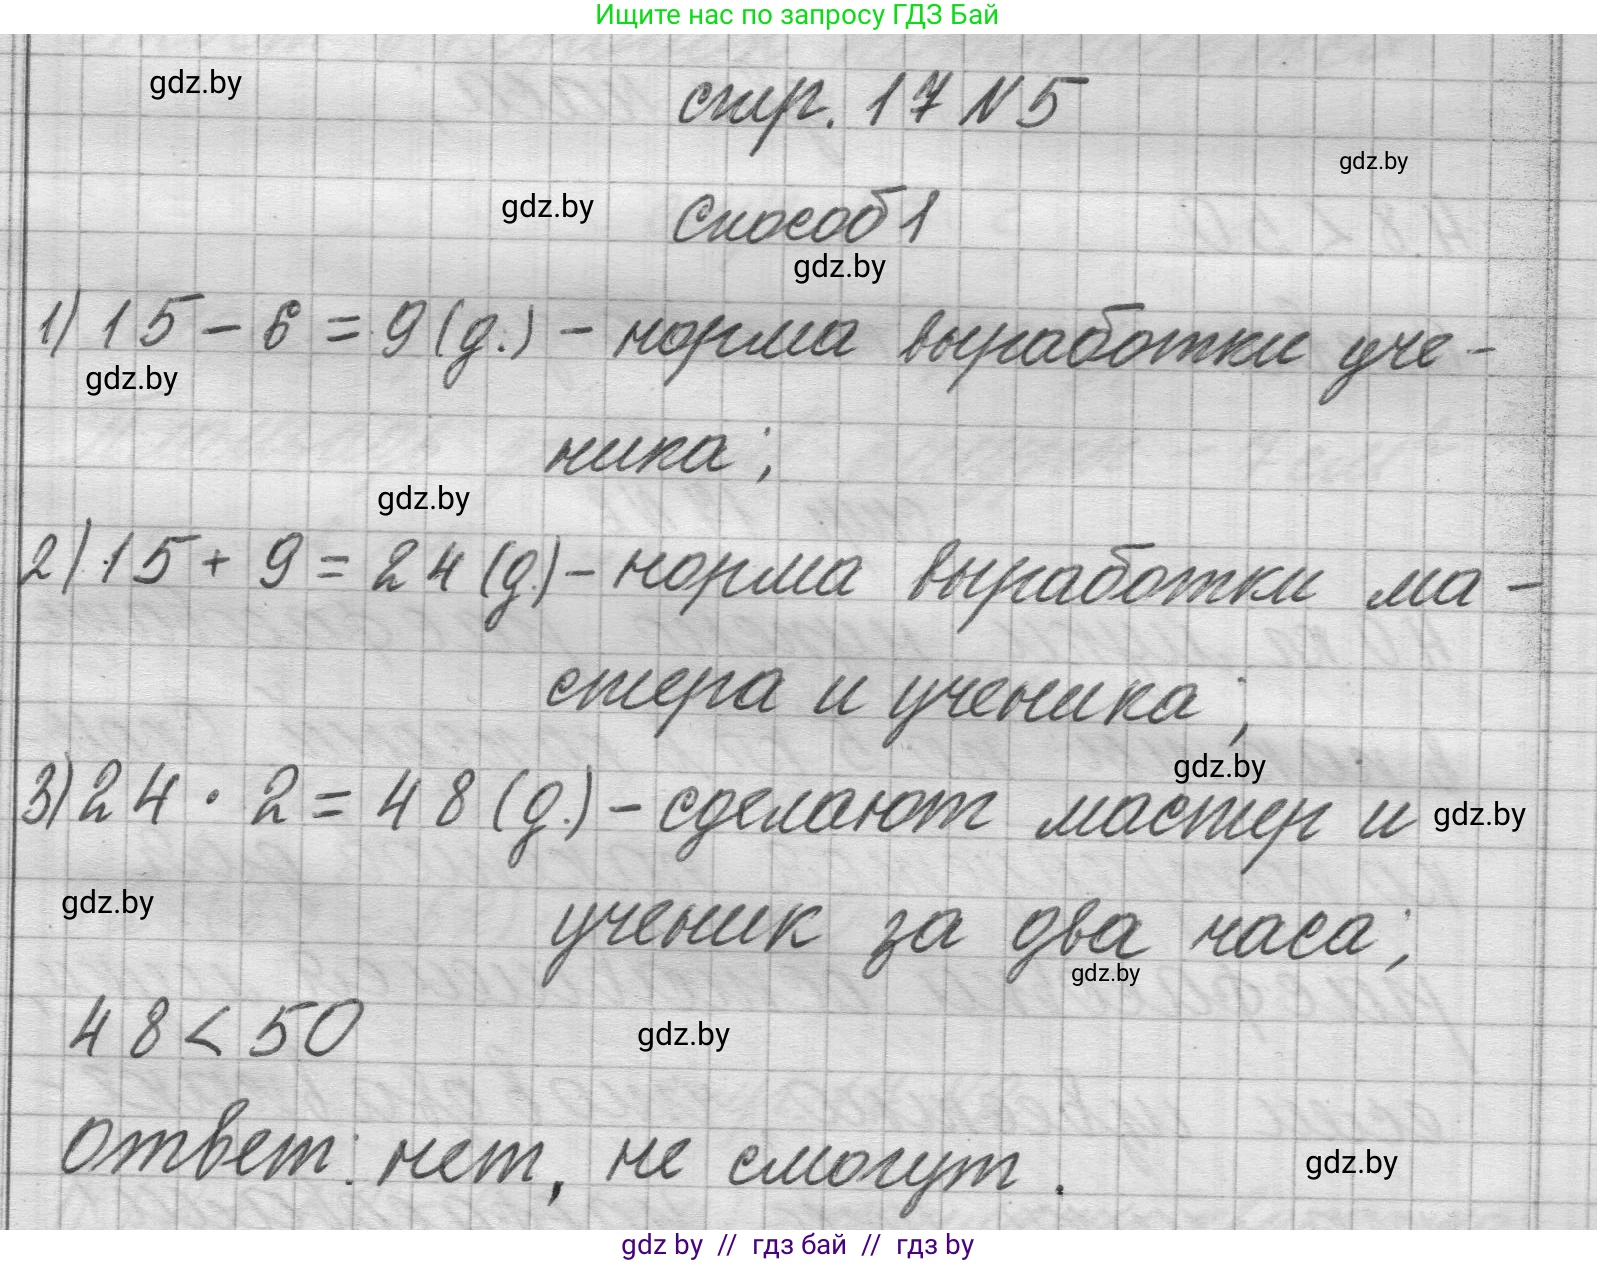 Ищите нас по запросу ГДЗ Бай
gdz.by
стр. 17 N 5
gdz.by
gdz.by
Способ 1
gdz.by
1) 15 - 6 = 9 (д.) - норма выработки уче-
gdz.by
ника;
gdz.by
2) 15 + 9 = 24 (д.) - норма выработки ма-
стера и ученика;
gdz.by
3) 24 · 2 = 48 (д.) - сделают мастер и
gdz.by
gdz.by
ученик за два часа;
gdz.by
48 < 50
gdz.by
Ответ: нет, не смогут.
gdz.by
gdz by // гдз бай // гдз by